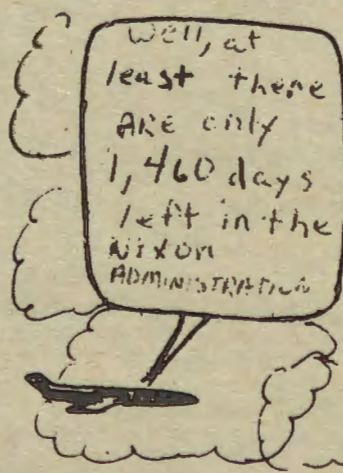 Well, at
least there
ARE only
1,460 days
left in the
NIXON
ADMINISTRATION